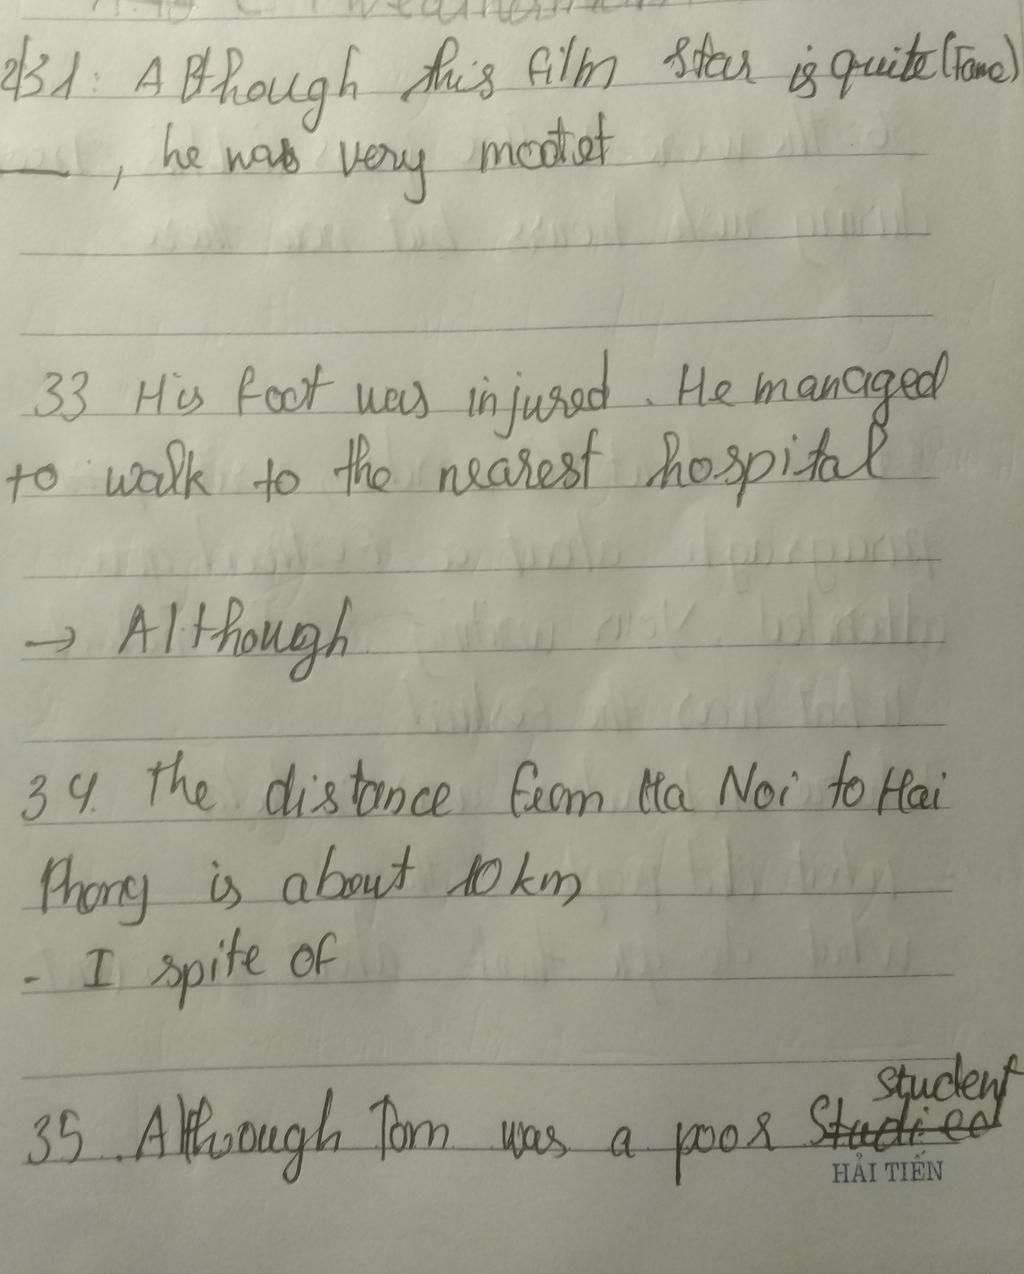 2/31: Although this film star is quite (Fame)
___, he was very modest
33 His foot was injured. He managed
to walk to the nearest hospital
→ Although
34. The distance from Ha Noi to Hai
Phong is about 10 km
- I spite of
student
35. Although Tom was a poor Studied
HẢI TIẾN